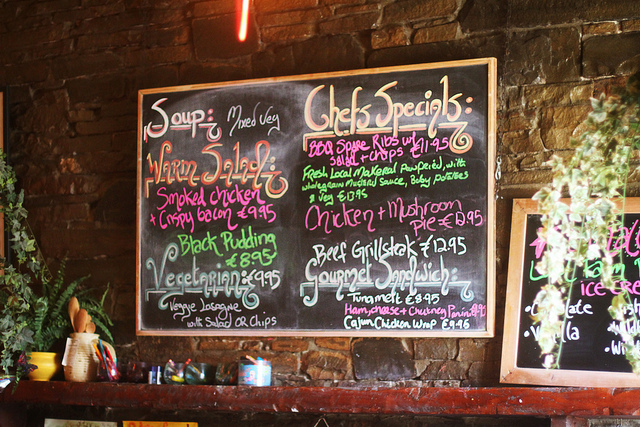 Soup: Mixed Veg
Warm Salad:
Smoked chicken
+ Crispy bacon €9.95
Black Pudding
€8.95
Vegetarian: €9.95
Veggie Lasagne
with Salad OR Chips
Chefs Specials:
BBQ Spare Ribs w/ €11.95
salad + chips
Fresh Local Makeral Pan Fried, with
wholegrain Mustard Sauce, Baby potatoes
& Veg €13.95
Chicken + Mushroom
Pie €12.95
Beef Grillsteak €12.95
Gourmet Sandwich:
Tuna melt €8.95
Ham, cheese + Chutney Panini
Cajun Chicken Wrap €9.95
ice cre